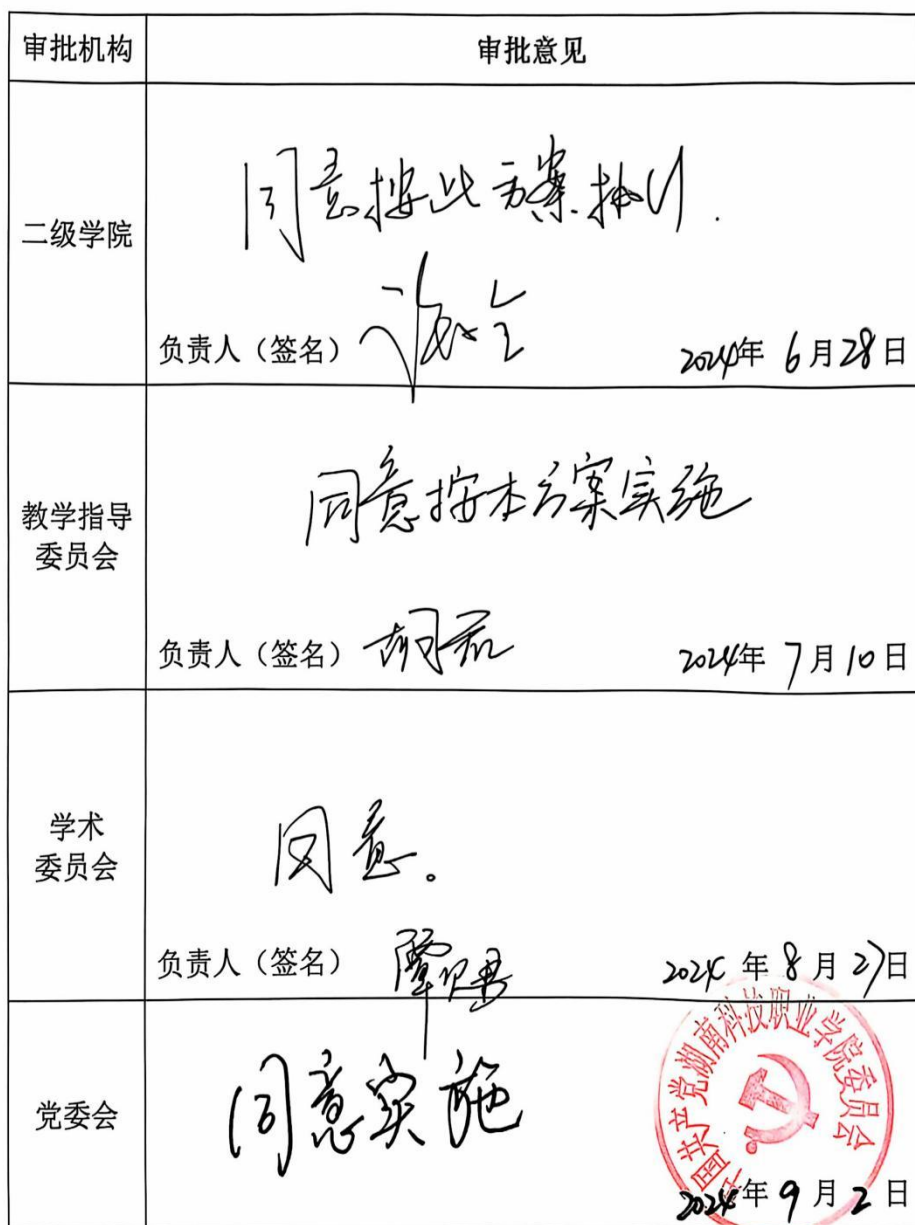 审批机构 审批意见
二级学院
同意按此方案执行.
负责人（签名） 2024年 6月28日
教学指导
委员会
同意按本方案实施
负责人（签名） 2024年 7月10日
学术
委员会
同意。
负责人（签名） 2024年 8月27日
党委会
同意实施
中国共产党湖南科技职业学院委员会
2024年 9月 2日